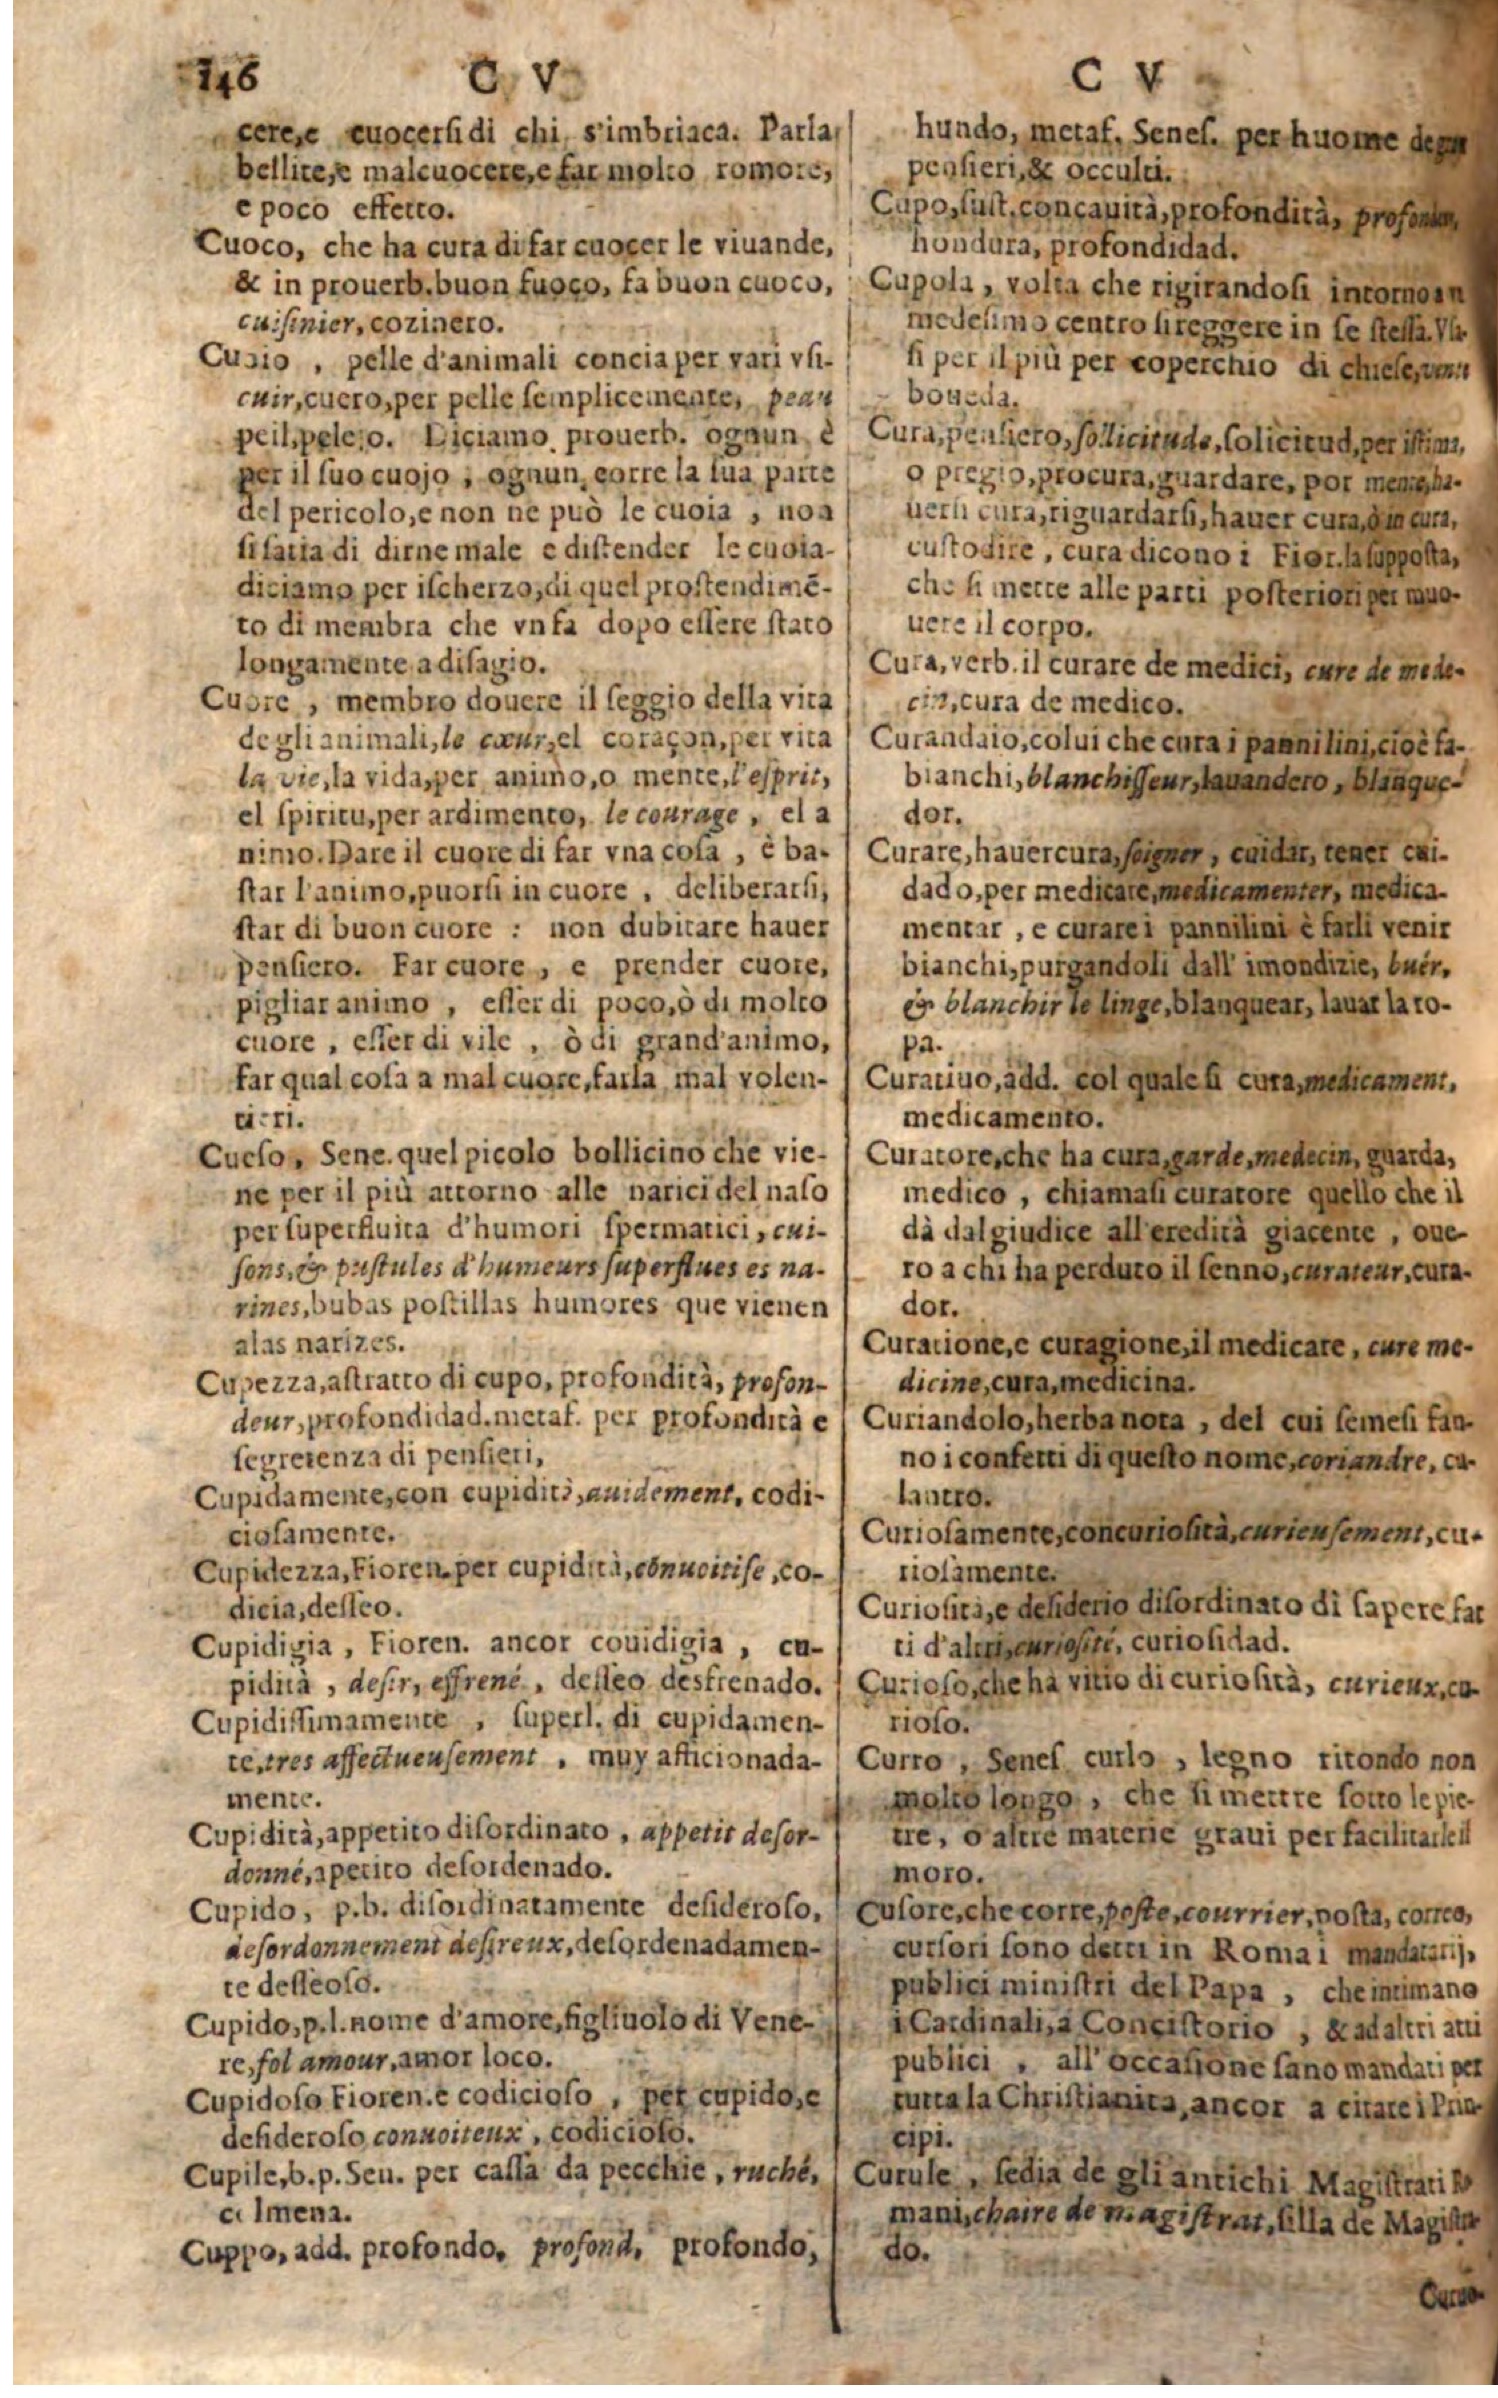 146 C V
cere,e cuocersi di chi s'imbriaca. Parla
bellite,e malcuocere,e far molto romore,
e poco effetto.
Cuoco, che ha cura di far cuocer le viuande,
& in prouerb.buon fuoco, fa buon cuoco,
cuiſinier, cozinero.
Cuoio , pelle d'animali concia per vari vſi-
cuir,cuero,per pelle ſemplicemente, peau
peil,pelejo. Diciamo prouerb. ognun è
per il ſuo cuojo , ognun corre la ſua parte
del pericolo,e non ne può le cuoia , non
ſi ſatia di dirne male e diſtender le cuoia-
diciamo per iſcherzo,di quel proſtendimē-
to di membra che vn fa dopo eſſere ſtato
longamente a diſagio.
Cuore , membro douere il ſeggio della vita
degli animali,le cœur,el coraçon,per vita
la vie,la vida,per animo,o mente,l'eſprit,
el ſpiritu,per ardimento, le courage , el a
nimo.Dare il cuore di far vna coſa , è ba-
ſtar l'animo,puorſi in cuore , deliberarſi,
ſtar di buon cuore : non dubitare hauer
penſiero. Far cuore , e prender cuore,
pigliar animo , eſſer di poco,ò di molto
cuore , eſſer di vile , ò di grand'animo,
far qual coſa a mal cuore,farla mal volen-
tieri.
Cueſo, Sene.quel picolo bollicino che vie-
ne per il più attorno alle narici del naſo
per ſuperfluita d'humori ſpermatici, cui-
ſons,& puſtules d'humeurs ſuperflues es na-
rines,bubas poſtillas humores que vienen
alas narizes.
Cupezza,aſtratto di cupo, profondità, profon-
deur,profondidad.metaf. per profondità e
ſegretenza di penſieri,
Cupidamente,con cupidità,auidement, codi-
cioſamente.
Cupidezza,Fioren.per cupidità,cōnuoitiſe ,co-
dicia,deſſeo.
Cupidigia , Fioren. ancor couidigia , cu-
pidità , deſir, effrené , deſſeo desfrenado.
Cupidiſſimamente , ſuperl. di cupidamen-
te,tres affectueuſement , muy afficionada-
mente.
Cupidità,appetito diſordinato , appetit deſor-
donné,apetito deſordenado.
Cupido, p.b. diſordinatamente deſideroſo,
deſordonnement deſireux,deſordenadamen-
te deſſeoſo.
Cupido,p.l.nome d'amore,figliuolo di Vene-
re,fol amour,amor loco.
Cupidoſo Fioren.e codicioſo , per cupido,e
deſideroſo conuoiteux , codicioſo.
Cupile,b.p.Sen. per caſſa da pecchie , ruché,
colmena.
Cuppo, add. profondo, profond, profondo,
C V
hundo, metaf. Seneſ. per huome de
penſieri,& occulti.
Cupo,ſuſt.concauità,profondità,
hondura, profondidad.
Cupola , volta che rigirandoſi intorno
medeſimo centro ſi reggere in ſe ſteſſa.
ſi per il più per coperchio di chieſe,
boueda.
Cura,penſiero,ſollicitude,ſolicitud,per iſtima,
o pregio,procura,guardare, por mente,ha-
uerſi cura,riguardarſi,hauer cura,ò in cura,
cuſtodire , cura dicono i Fior.la ſuppoſta,
che ſi mette alle parti poſteriori per muo-
uere il corpo.
Cura,verb.il curare de medici, cure de mede-
cin,cura de medico.
Curandaio,colui che cura i pannilini,cioè fa-
bianchi,blanchiſſeur,lauandero , blanque-
dor.
Curare,hauercura,ſoigner , cuidar, tener cui-
dado,per medicare,medicamenter, medica-
mentar , e curare i pannilini è farli venir
bianchi,purgandoli dall' imondizie, buér,
& blanchir le linge,blanquear, lauar la ro-
pa.
Curatiuo,add. col quale ſi cura,medicament,
medicamento.
Curatore,che ha cura,garde,medecin, guarda,
medico , chiamaſi curatore quello che il
dà dal giudice all'eredità giacente , oue-
ro a chi ha perduto il ſenno,curateur,cura-
dor.
Curatione,e curagione,il medicare, cure me-
dicine,cura,medicina.
Curiandolo,herba nota , del cui ſemeſi fan-
no i confetti di queſto nome,coriandre, cu-
lantro.
Curioſamente,concurioſità,curieuſement,cu-
rioſamente.
Curioſità,e deſiderio diſordinato di ſapere fat
ti d'altri,curioſité, curioſidad.
Curioſo,che ha vitio di curioſità, curieux,cu-
rioſo.
Curro , Seneſ curlo , legno ritondo non
molto longo , che ſi mettre ſotto le pie-
tre, o altre materie graui per facilitarle il
moro.
Cuſore,che corre,poſte,courrier,poſta, correo,
curſori ſono detti in Roma i mandatarij,
publici miniſtri del Papa , che intimano
i Cardinali,a Conciſtorio , & ad altri atti
publici , all' occaſione ſano mandati per
tutta la Chriſtianita,ancor a citare i Prin-
cipi.
Curule , ſedia de gli antichi Magiſtrati Ro
mani,chaire de magiſtrat,ſilla de Magiſtra-
do.